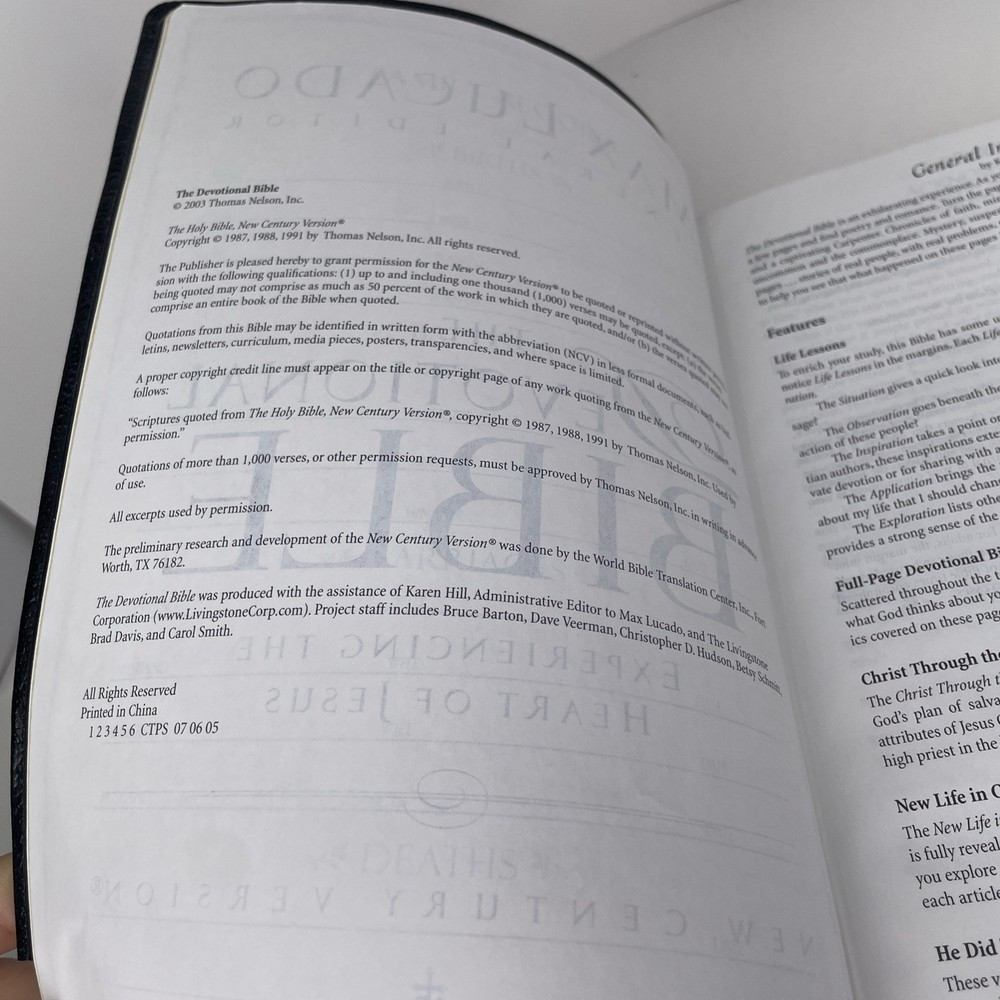 The Devotional Bible
© 2003 Thomas Nelson, Inc.
The Holy Bible, New Century Version®
Copyright © 1987, 1988, 1991 by Thomas Nelson, Inc. All rights reserved.
The Publisher is pleased hereby to grant permission for the New Century Version® to be quoted or reprinted without
sion with the following qualifications: (1) up to and including one thousand (1,000) verses may be quoted, except
being quoted may not comprise as much as 50 percent of the work in which they are quoted, and/or (b) the verses quoted
comprise an entire book of the Bible when quoted.
Quotations from this Bible may be identified in written form with the abbreviation (NCV) in less formal documents, such as
letins, newsletters, curriculum, media pieces, posters, transparencies, and where space is limited.
A proper copyright credit line must appear on the title or copyright page of any work quoting from the New Century Version®, as
follows:
“Scriptures quoted from The Holy Bible, New Century Version®, copyright © 1987, 1988, 1991 by Thomas Nelson, Inc. Used by
permission.”
Quotations of more than 1,000 verses, or other permission requests, must be approved by Thomas Nelson, Inc. in writing in advance
of use.
All excerpts used by permission.
The preliminary research and development of the New Century Version® was done by the World Bible Translation Center, Inc., Fort
Worth, TX 76182.
The Devotional Bible was produced with the assistance of Karen Hill, Administrative Editor to Max Lucado, and The Livingstone
Corporation (www.LivingstoneCorp.com). Project staff includes Bruce Barton, Dave Veerman, Christopher D. Hudson, Betsy Schmitt,
Brad Davis, and Carol Smith.
All Rights Reserved
Printed in China
1 2 3 4 5 6 CTPS 07 06 05
DEATHS
General
by
The Devotional Bible is an exhilarating experience. As
a few pages and find poetry and romance. Turn the
and a captivating Carpenter. Chronicles of faith,
passion and the commonplace. Mystery,
pages . . . stories of real people, with real problems,
to help you see that what happened on these pages
Features
Life Lessons
To enrich your study, this Bible has some
notice Life Lessons in the margins. Each
ration.
The Situation gives a quick look into
sage?
The Observation goes beneath the
action of these people?
The Inspiration takes a point
tian authors, these inspirations
vate devotion or for sharing with a
The Application brings the
about my life that I should
The Exploration lists
provides a strong sense of the
Full-Page Devotional
Scattered throughout the
what God thinks about
ics covered on these
Christ Through the
The Christ Through
God's plan of
attributes of Jesus
high priest in the
New Life in
The New Life
is fully
you explore
each
He Did
These